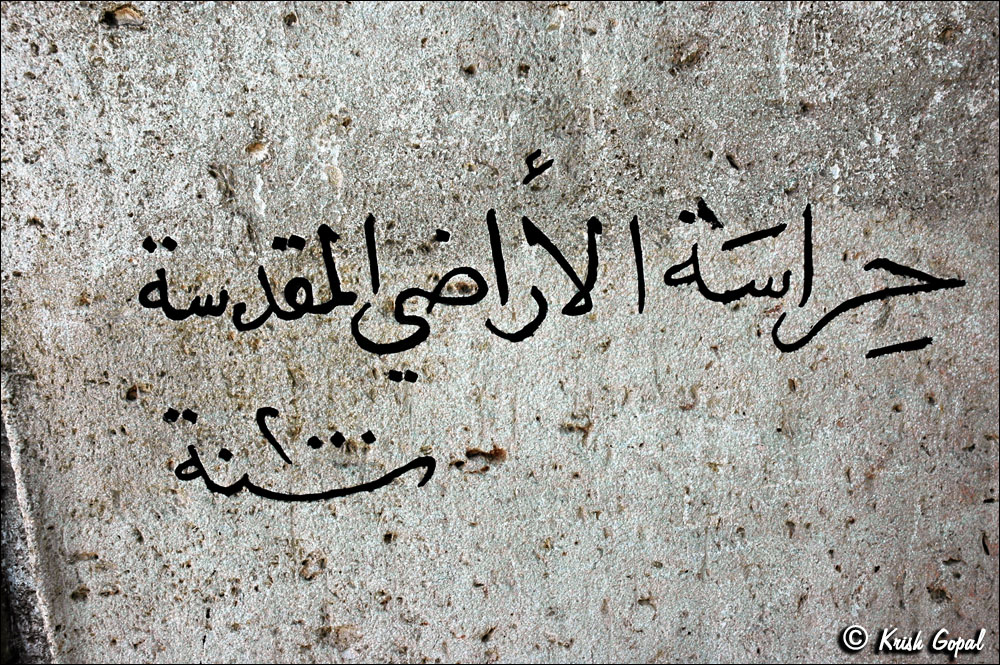 حِراسَة الأراضي المقدسة
سنة ٢٠٠٠
© Krish Gopal